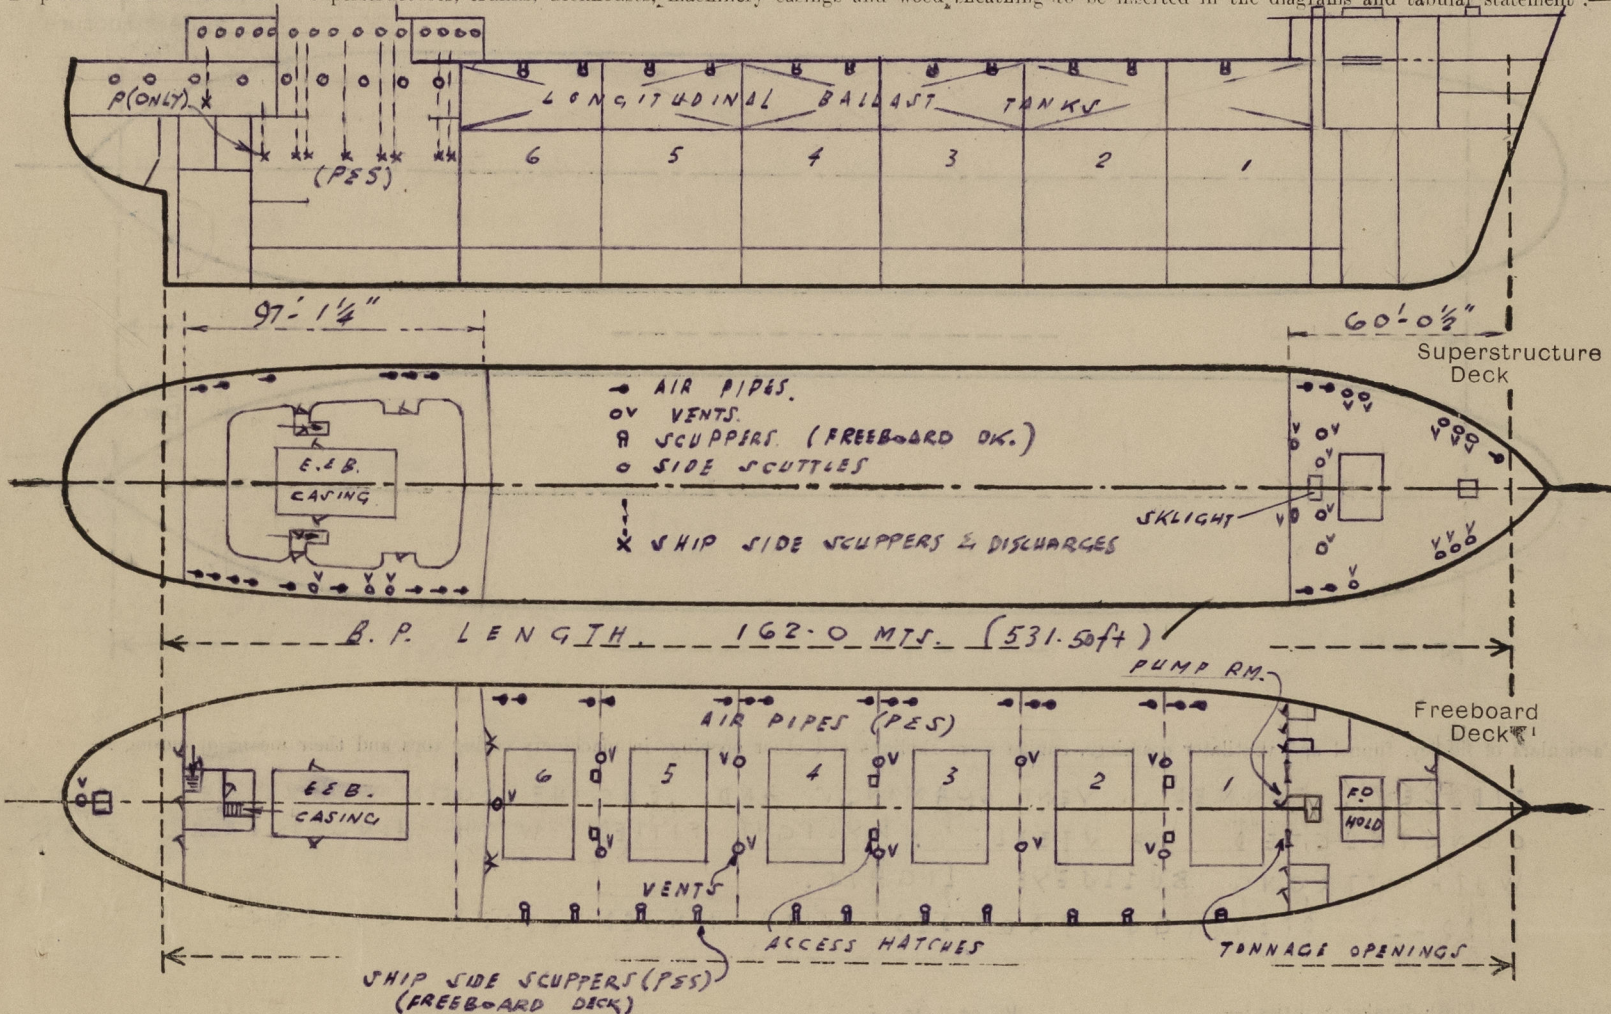 superstructures, trunks, deckhouses, machinery casings and wood sheathing to be inserted in the diagrams and tabular statement :—
P(ONLY)
(PES)
LONGITUDINAL BALLAST TANKS
6 5 4 3 2 1
97'- 1¼"
60'-0½"
Superstructure
Deck
AIR PIPES.
V VENTS.
SCUPPERS. (FREEBOARD DK.)
SIDE SCUTTLES
SHIP SIDE SCUPPERS & DISCHARGES
E.&B.
CASING
SKLIGHT
V V V V V V V V V V V V V V V V V
B.P. LENGTH. 162.0 MTS. (531.50ft)
PUMP RM.
Freeboard
Deck
AIR PIPES (PES)
6 5 4 3 2 1
V V V V V V V V V V V V
E&B.
CASING
F.O
HOLD
VENTS
ACCESS HATCHES
TONNAGE OPENINGS
SHIP SIDE SCUPPERS (PES)
(FREEBOARD DECK)